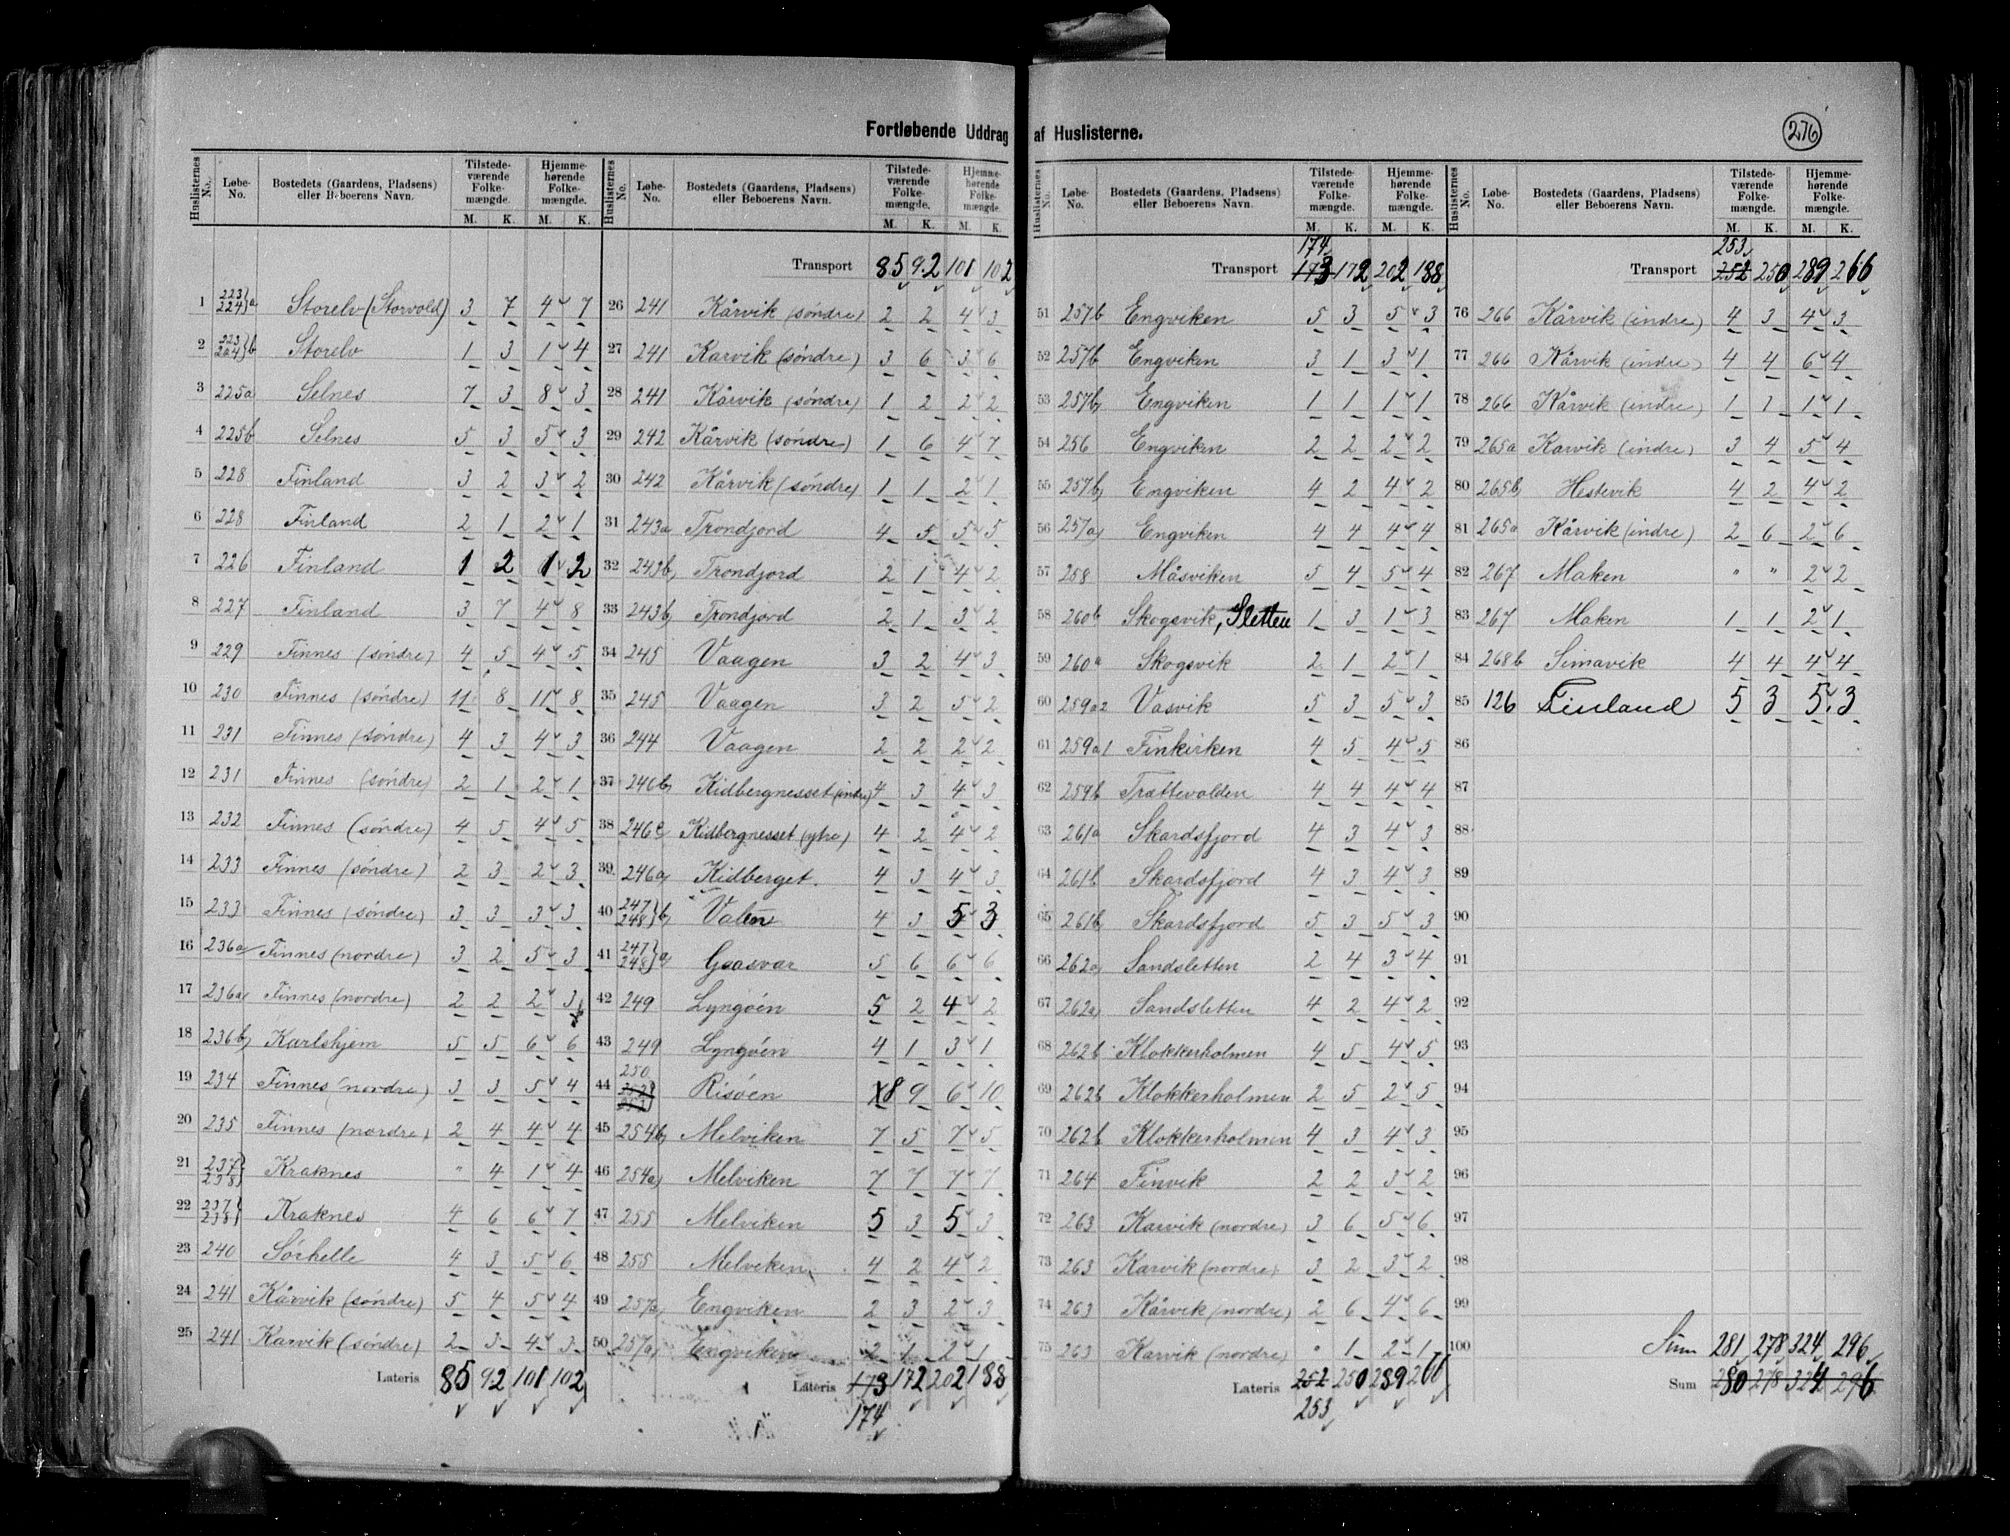 Fortløbende Uddrag af Huslisterne.
276
Huslisternes No. | Løbe-No. | Bostedets (Gaardens, Pladsens) eller Beboerens Navn. | Tilstedeværende Folkemængde. M. K. | Hjemmehørende Folkemængde. M. K.
1 223 224 a Storelv (Storvold) 3 7 4 7
2 223 224 b Storelv 1 3 1 4
3 225a Selnes 7 3 8 3
4 225b Selnes 5 3 5 3
5 228 Finland 3 2 3 2
6 228 Finland 2 1 2 1
7 226 Finland 1 2 1 2
8 227 Finland 3 7 4 8
9 229 Finnes (søndre) 4 5 4 5
10 230 Finnes (søndre) 11 8 11 8
11 231 Finnes (søndre) 4 3 4 3
12 231 Finnes (søndre) 2 1 2 1
13 232 Finnes (søndre) 4 5 4 5
14 233 Finnes (søndre) 2 3 2 3
15 233 Finnes (søndre) 3 3 3 3
16 236a Finnes (nordre) 3 2 5 3
17 236a Finnes (nordre) 2 2 2 3
18 236b Karlshjem 5 5 6 6
19 234 Finnes (nordre) 3 3 5 4
20 235 Finnes (nordre) 2 4 4 4
21 237 238 Kraknes " 4 1 4
22 237 238 Kraknes 4 6 6 7
23 240 Sørhelle 4 3 5 6
24 241 Kårvik (søndre) 5 4 5 4
25 241 Karvik (søndre) 2 3 4 3
Lateris 85 92 101 102
Huslisternes No. | Løbe-No. | Bostedets (Gaardens, Pladsens) eller Beboerens Navn. | Tilstedeværende Folkemængde. M. K. | Hjemmehørende Folkemængde. M. K.
Transport 85 92 101 102
26 241 Kårvik (søndre) 2 2 4 3
27 241 Karvik (søndre) 3 6 3 6
28 241 Kårvik (søndre) 1 2 2 2
29 242 Kårvik (søndre) 1 6 4 7
30 242 Kårvik (søndre) 1 1 2 1
31 243a Trondjord 4 5 5 5
32 243b Trondjord 2 1 4 2
33 243b Trondjord 2 1 3 2
34 245 Vaagen 3 2 4 3
35 245 Vaagen 3 2 5 2
36 244 Vaagen 2 2 2 2
37 246b Kidbergnesset (indre) 4 3 4 3
38 246c Kidbergnesset (ytre) 4 2 4 2
39 246a Kidberget. 4 3 4 3
40 247 248 b Valen 4 3 5 3
41 247 248 a Gaasvar 5 6 6 6
42 249 Lyngøen 5 2 4 2
43 249 Lyngøen 4 1 3 1
44 250 Risøen 8 9 6 10
45 254b Melviken 7 5 7 5
46 254a Melviken 7 7 7 7
47 255 Melviken 5 3 5 3
48 255 Melviken 4 2 4 2
49 257a Engviken 2 3 2 3
50 257a Engviken 2 1 2 1
Lateris 173 172 202 188
174
Huslisternes No. | Løbe-No. | Bostedets (Gaardens, Pladsens) eller Beboerens Navn. | Tilstedeværende Folkemængde. M. K. | Hjemmehørende Folkemængde. M. K.
174
Transport 173 172 202 188
51 257b Engviken 5 3 5 3
52 257b Engviken 3 1 3 1
53 257b Engviken 1 1 1 1
54 256 Engviken 2 2 2 2
55 257b Engviken 4 2 4 2
56 257a Engviken 4 4 4 4
57 258 Måsviken 5 4 5 4
58 260b Skogsvik, Sletten 1 3 1 3
59 260a Skogsvik 2 1 2 1
60 259a2 Vasvik 5 3 5 3
61 259a1 Finkirken 4 5 4 5
62 259b Trættevolden 4 4 4 4
63 261a Skardsfjord 4 3 4 3
64 261b Skardsfjord 4 3 4 3
65 261b Skardsfjord 5 3 5 3
66 262a Sandsletten 2 4 3 4
67 262a Sandsletten 4 2 4 2
68 262b Klokkerholmen 4 5 4 5
69 262b Klokkerholmen 2 5 2 5
70 262b Klokkerholmen 4 3 4 3
71 264 Finvik 2 2 3 2
72 263 Karvik (nordre) 3 6 5 6
73 263 Karvik (nordre) 3 2 3 2
74 263 Kårvik (nordre) 2 6 4 6
75 263 Karvik (nordre) " 1 2 1
Lateris 252 250 289 266
253
Huslisternes No. | Løbe-No. | Bostedets (Gaardens, Pladsens) eller Beboerens Navn. | Tilstedeværende Folkemængde. M. K. | Hjemmehørende Folkemængde. M. K.
253
Transport 252 250 289 266
76 266 Kårvik (indre) 4 3 4 3
77 266 Kårvik (indre) 4 4 6 4
78 266 Kårvik (indre) 1 1 1 1
79 265a Karvik (indre) 3 4 5 4
80 265b Hestevik 4 2 4 2
81 265a Kårvik (indre) 2 6 2 6
82 267 Maken " " 2 2
83 267 Maken 1 1 2 1
84 268b Simavik 4 4 4 4
85 126 Finland 5 3 5 3
86
87
88
89
90
91
92
93
94
95
96
97
98
99
100
Sum 281 278 324 296
Sum 280 278 324 296